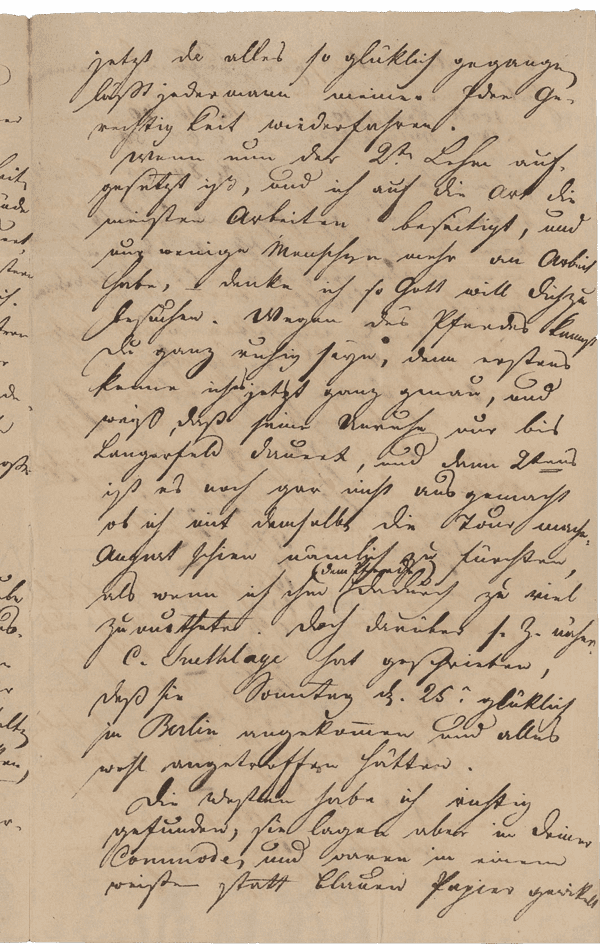 jetzt da alles so glüklich gegangen
läßt jedermann meiner Idee Ge-
rechtigkeit wiederfahren.
Wenn nun der 2te Lehm auf-
gesetzt ist, und ich auf die Art die
meisten Arbeiten beseitigt, und
nur wenige Menschen mehr an Arbeit
habe, denke ich so Gott will Dich zu
besuchen. Wegen des Pferdes kannst
Du ganz ruhig seyn, denn erstens
kenne ichs jetzt ganz genau, und
weiß, daß seine Unruhe nur bis
Langerfeld dauert, und dann 2tens
ist es noch gar nicht ausgemacht
ob ich mit demselben die Tour mache.
August schien nämlich zu fürchten,
als wenn ich ihm (dem Pferde) dadurch zu viel
zumuthete. Doch darüber s. Z. näher.
C. hat geschrieben,
daß sie Sonntag d. 25t glüklich
in Berlin angekommen und alles
wohl angetroffen hätten.
Die Westen habe ich richtig
gefunden, sie lagen aber in Deiner
Commode, und waren in einem
weißen statt blauen Papier gewickelt